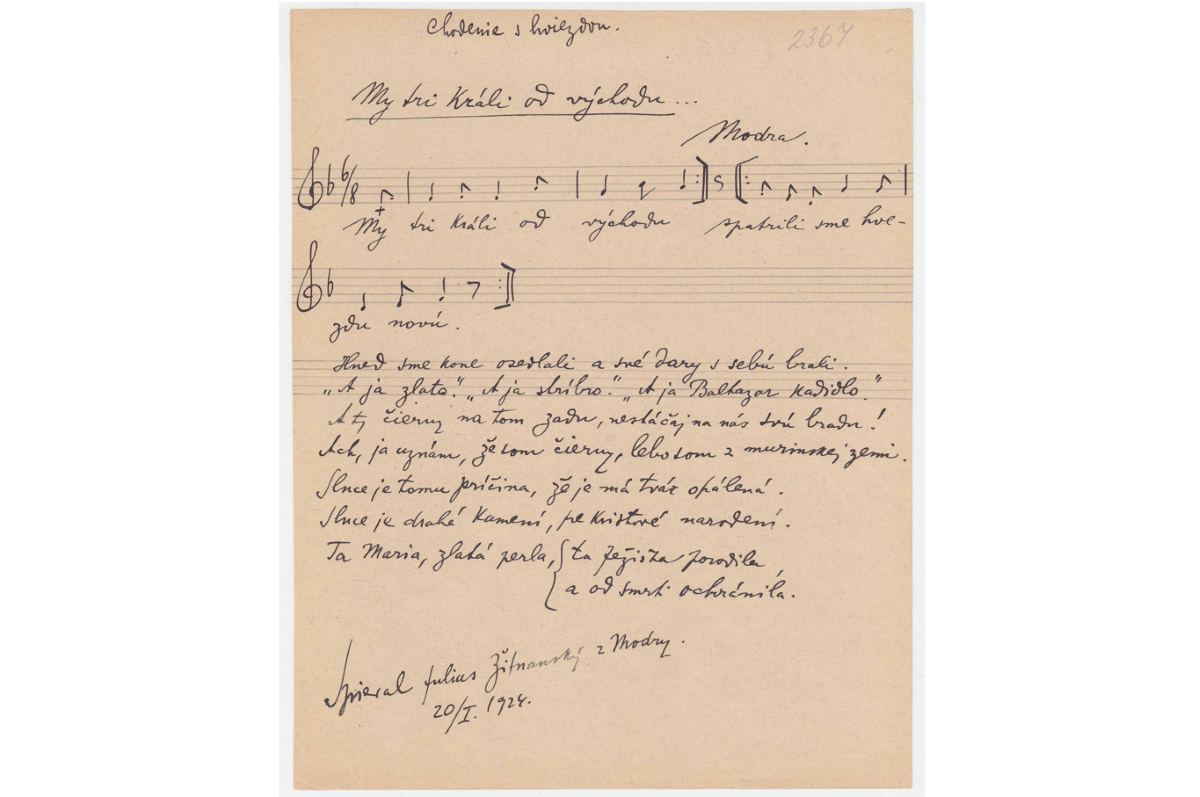 Chodenie s hviezdou.
2367
My tri Králi od východu...
Modra.
6/8
My tri králi od východu spatrili sme hve-
zdu novú.
Hneď sme kone osedlali a své dary s sebú brali.
„A ja zlato." „A ja stríbro." „A ja Balthazar kadidlo."
A ty čierny na tom zadu, nestáčaj na nás svú bradu!
Ach, ja uznám, že som čierny, lebo som z murínskej zemi.
Slnce je tomu príčina, že je má tvár opálená.
Slnce je drahé kamení, pre Kristové narodení.
Ta Maria, zlatá perla, { ta Ježiša porodila
a od smrti ochránila.
Spieval Julius Žitnanský z Modry.
20/I. 1924.